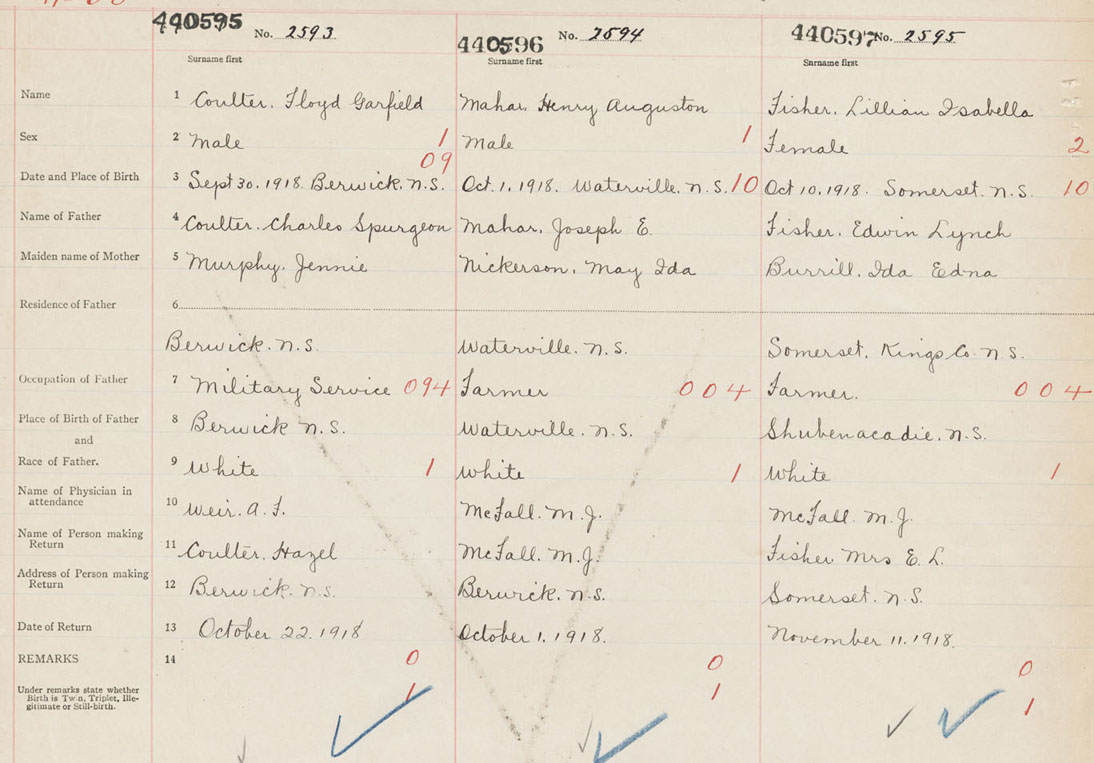 440595 No. 2593 440596 No. 2594 440597 No. 2595
Surname first Surname first Surname first
Name 1 Coulter. Floyd Garfield Mahar. Henry Auguston Fisher. Lillian Isabella
Sex 2 Male 1 Male 1 Female 2
09
Date and Place of Birth 3 Sept 30. 1918. Berwick. N.S. Oct. 1. 1918. Waterville. N.S. 10 Oct 10. 1918. Somerset. N.S. 10
Name of Father 4 Coulter. Charles Spurgeon Mahar. Joseph E. Fisher. Edwin Lynch
Maiden name of Mother 5 Murphy. Jennie Nickerson. May Ida Burrill. Ida Edna
Residence of Father 6
Berwick. N.S. Waterville. N.S. Somerset. Kings Co. N.S.
Occupation of Father 7 Military Service 094 Farmer 004 Farmer. 004
Place of Birth of Father 8 Berwick N.S. Waterville. N.S. Shubenacadie. N.S.
and
Race of Father. 9 White 1 White 1 White 1
Name of Physician in
attendance 10 Weir. A. F. McFall. M. J. McFall. M. J.
Name of Person making
Return 11 Coulter. Hazel McFall. M. J. Fisher Mrs E. L.
Address of Person making
Return 12 Berwick. N.S. Berwick. N.S. Somerset. N.S.
Date of Return 13 October 22. 1918 October 1. 1918. November 11. 1918.
REMARKS 14 0 0 0
Under remarks state whether
Birth is Twin, Triplet, Ille-
gitimate or Still-birth. 1 1 1